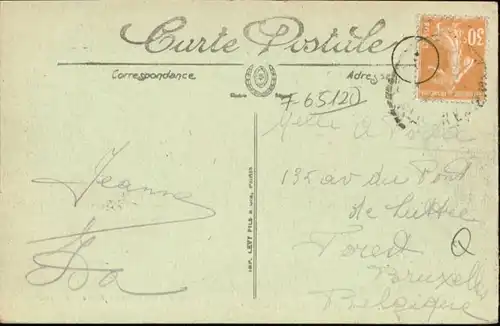 Carte Postale
Correspondance
Adresse
30c
F-65120
Melle A
135 av du Pont
de Luttre
Jeanne
Forest
Bruxelles
Belgique
IMP. LEVY FILS & CIE, PARIS